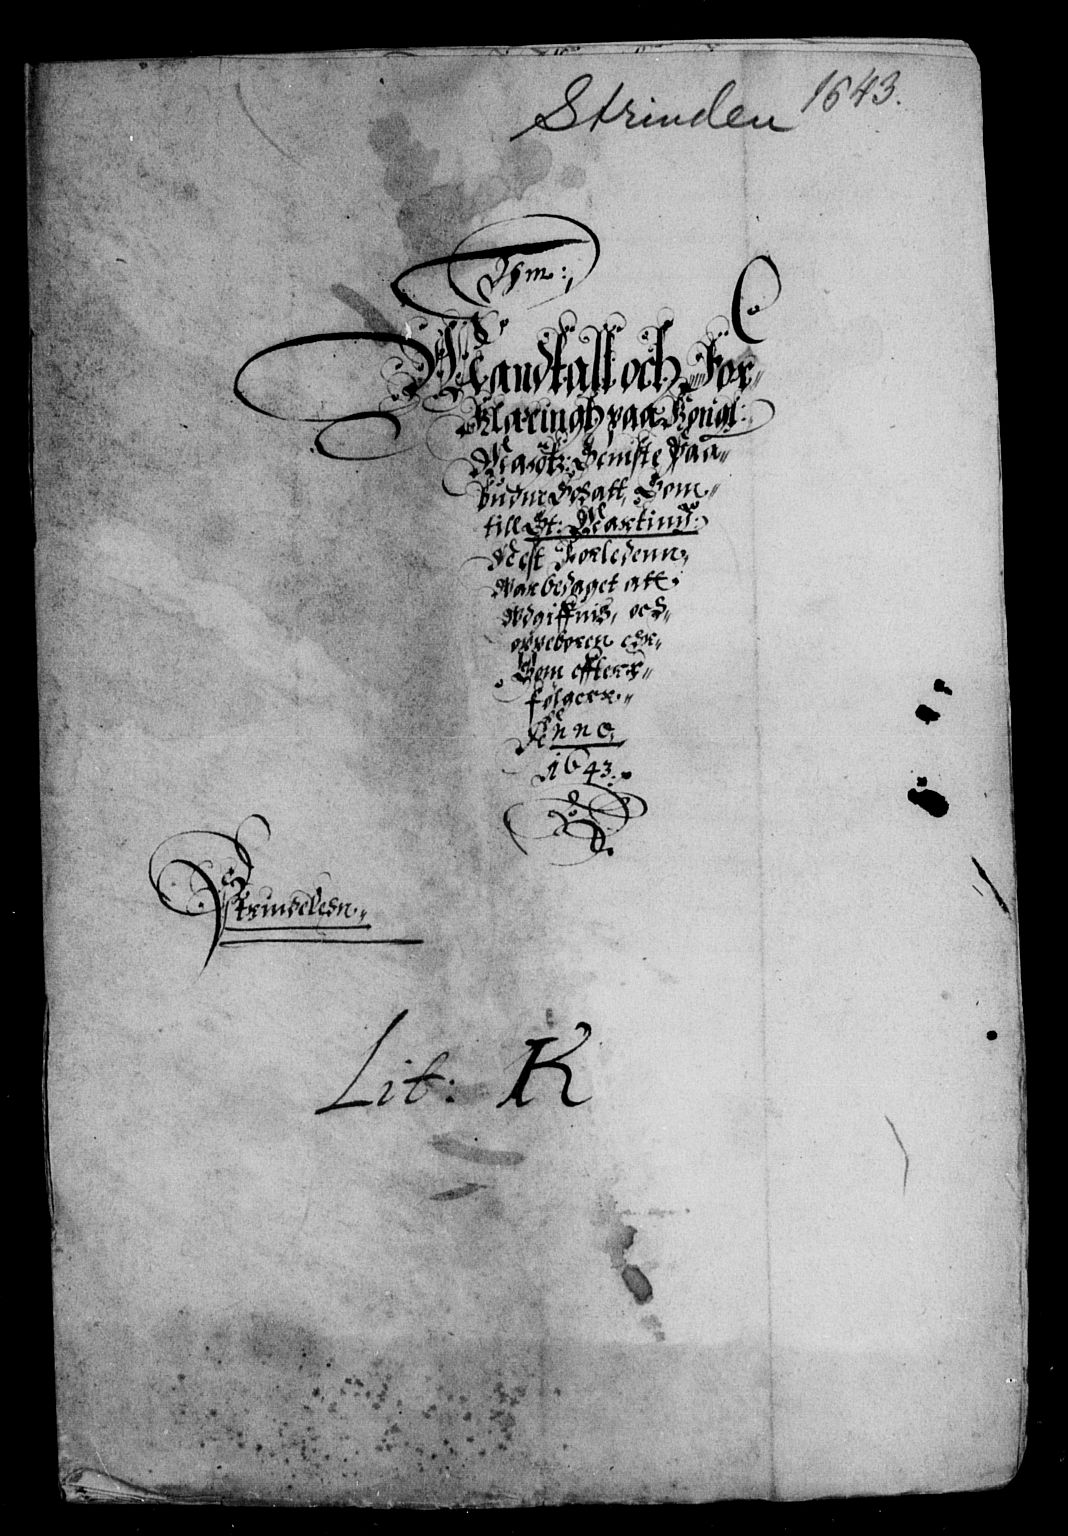 Strinden 1643.
Mandtall och For
Klaringh paa Kongl:
Maÿtz: Seniste Paa
budne Schatt, Som
till St: Martinÿ
Nest Forledenn
War bedaget att
Wdgiffuis, och
oppeboren ehr
Som effterr
følgerr
Anno
1643.
Strindelehn
Lit: K